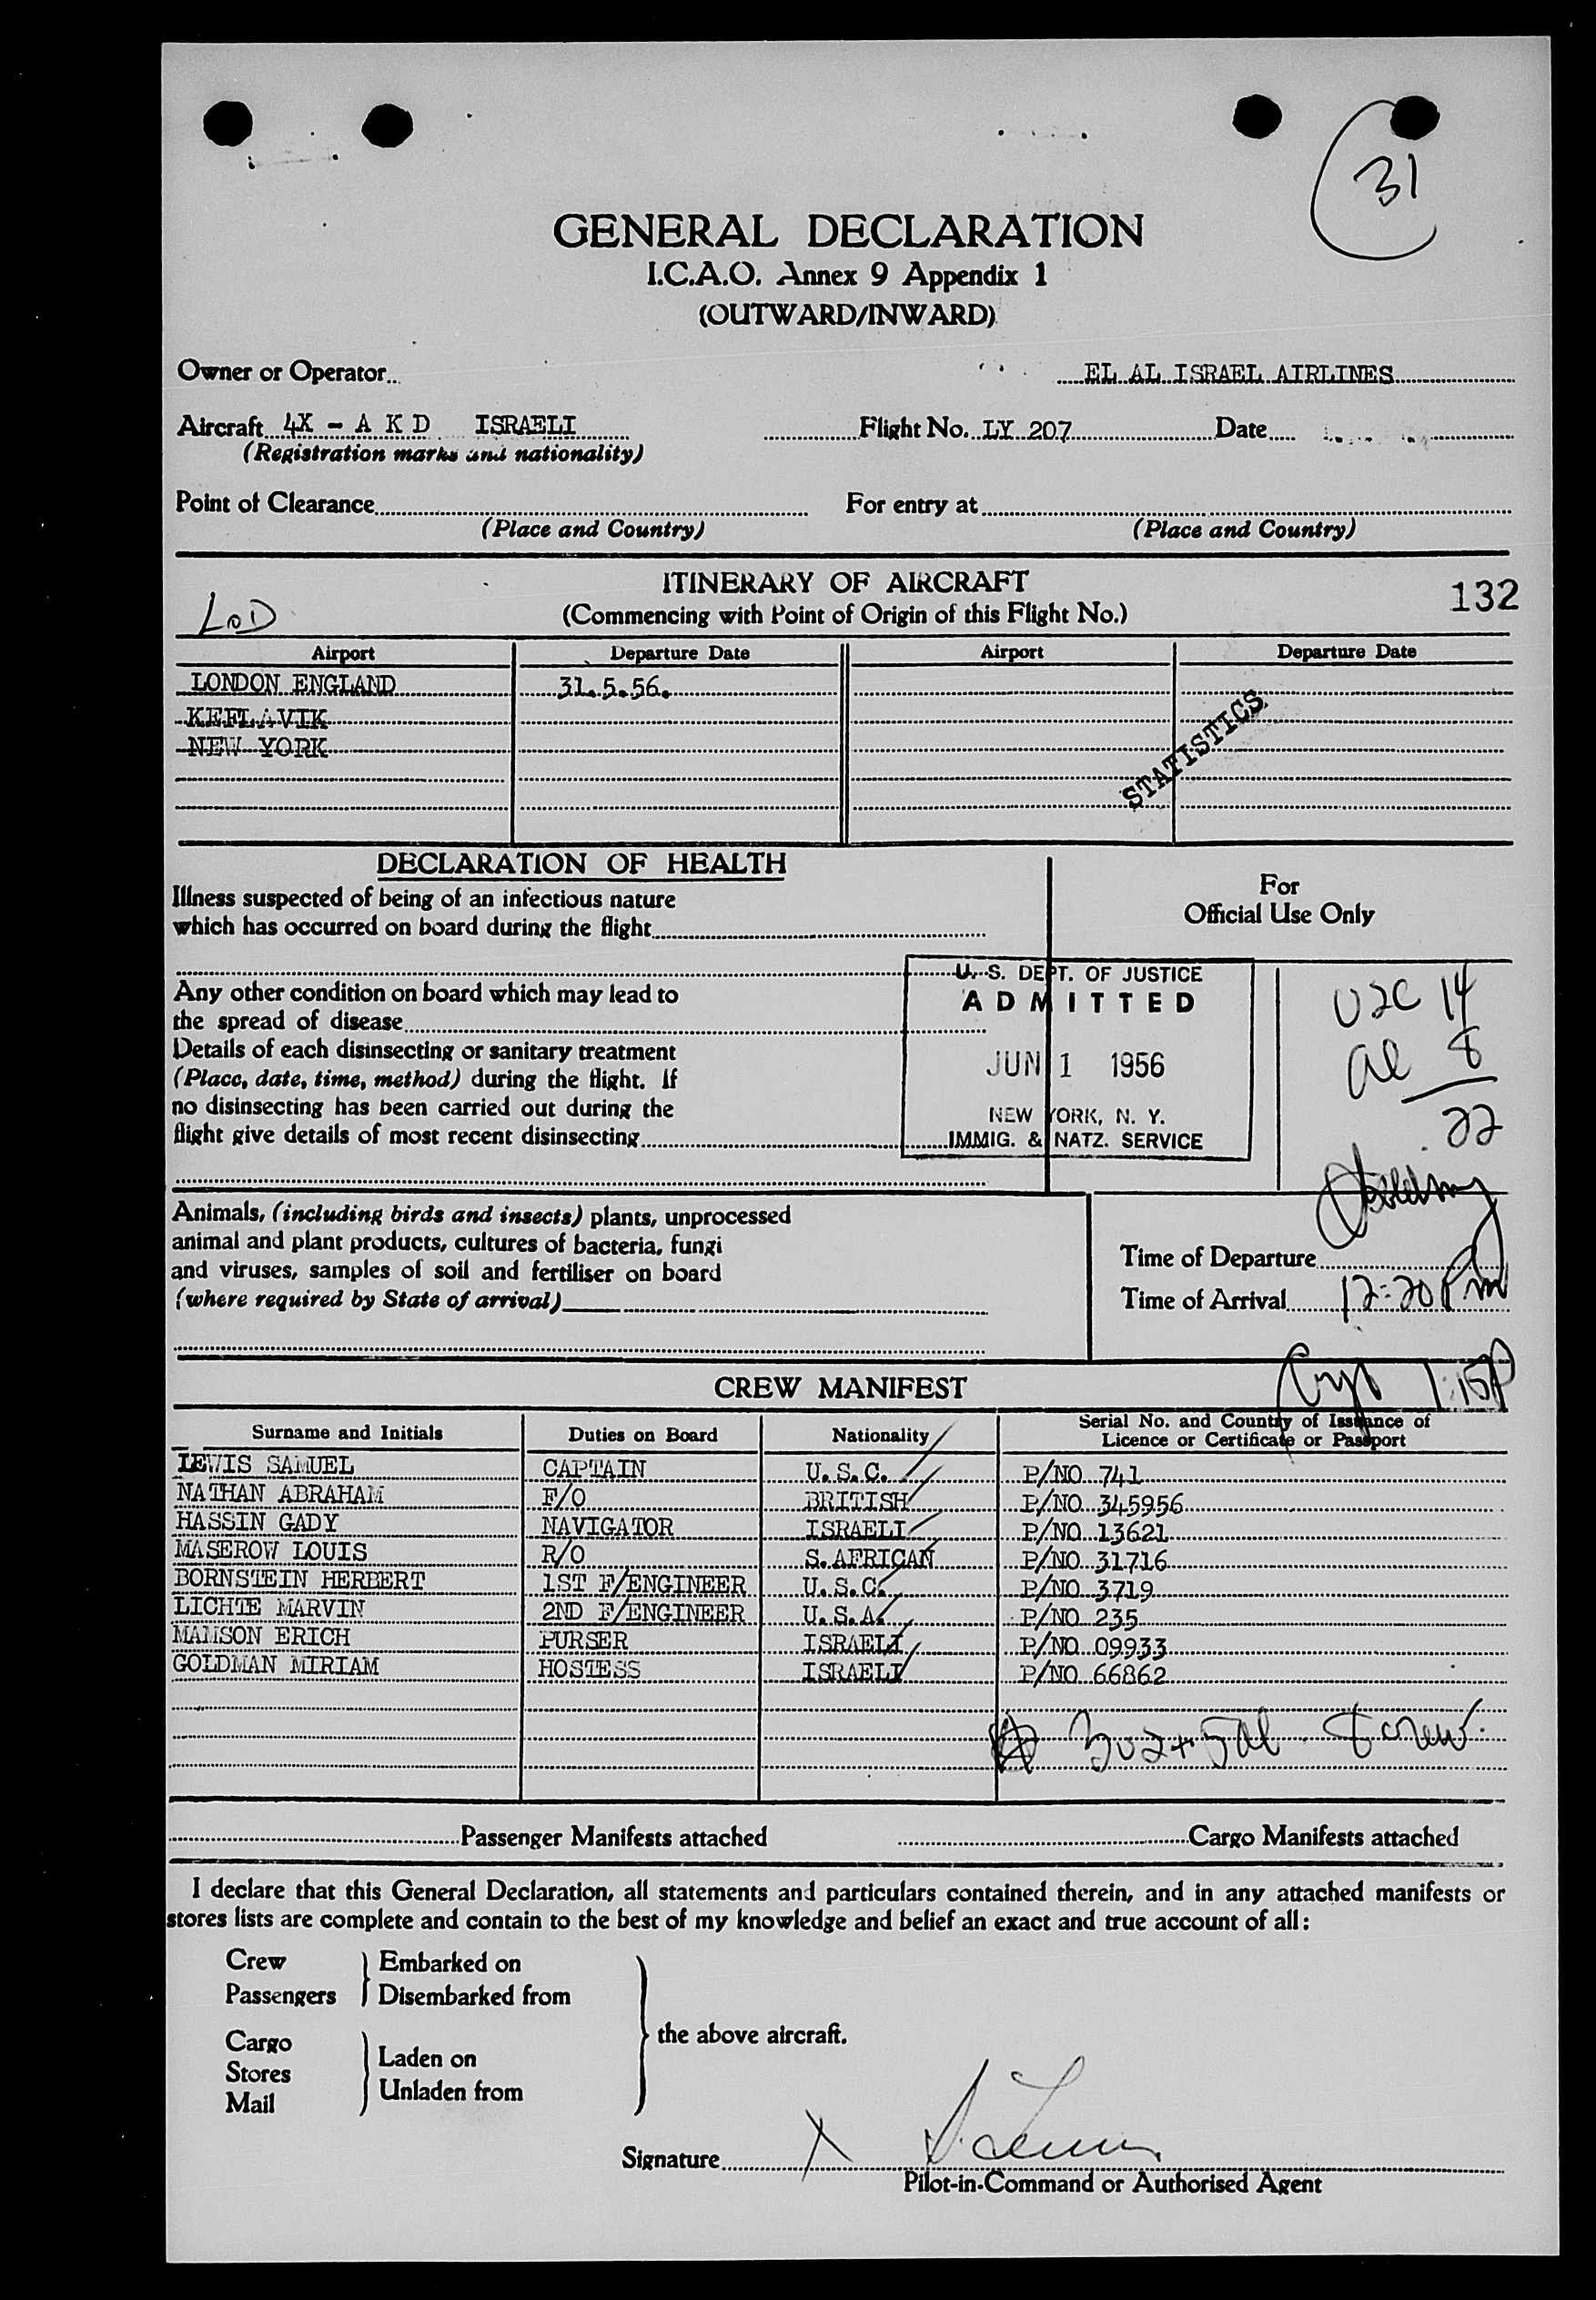 31
GENERAL DECLARATION
I.C.A.O. Annex 9 Appendix 1
(OUTWARD/INWARD)
Owner or Operator EL AL ISRAEL AIRLINES
Aircraft 4X - A K D ISRAELI Flight No. LY 207 Date
(Registration marks and nationality)
Point of Clearance For entry at
(Place and Country) (Place and Country)
ITINERARY OF AIRCRAFT
LOD (Commencing with Point of Origin of this Flight No.) 132
Airport Departure Date Airport Departure Date
LONDON ENGLAND 31.5.56.
KEFLAVIK
NEW YORK
STATISTICS
DECLARATION OF HEALTH
Illness suspected of being of an infectious nature
which has occurred on board during the flight
Any other condition on board which may lead to
the spread of disease
Details of each disinsecting or sanitary treatment
(Place, date, time, method) during the flight. If
no disinsecting has been carried out during the
flight give details of most recent disinsecting
For
Official Use Only
U. S. DEPT. OF JUSTICE
ADMITTED
JUN 1 1956
NEW YORK, N. Y.
IMMIG. & NATZ. SERVICE
USC 14
al 8
22
Animals, (including birds and insects) plants, unprocessed
animal and plant products, cultures of bacteria, fungi
and viruses, samples of soil and fertiliser on board
(where required by State of arrival)
Time of Departure
Time of Arrival 12:20 Pm
1:15P
CREW MANIFEST
Surname and Initials Duties on Board Nationality Serial No. and Country of Issuance of Licence or Certificate or Passport
LEWIS SAMUEL CAPTAIN U.S.C. P/NO 741
NATHAN ABRAHAM F/O BRITISH P/NO 345956
HASSIN GADY NAVIGATOR ISRAELI P/NO 13621
MASEROW LOUIS R/O S.AFRICAN P/NO 31716
BORNSTEIN HERBERT 1ST F/ENGINEER U.S.C. P/NO 3719
LICHTE MARVIN 2ND F/ENGINEER U.S.A. P/NO 235
MAMSON ERICH PURSER ISRAELI P/NO 09933
GOLDMAN MIRIAM HOSTESS ISRAELI P/NO 66862
crew
Passenger Manifests attached Cargo Manifests attached
I declare that this General Declaration, all statements and particulars contained therein, and in any attached manifests or
stores lists are complete and contain to the best of my knowledge and belief an exact and true account of all:
Crew Embarked on
Passengers Disembarked from
the above aircraft.
Cargo
Stores
Mail
Laden on
Unladen from
Signature X
Pilot-in-Command or Authorised Agent